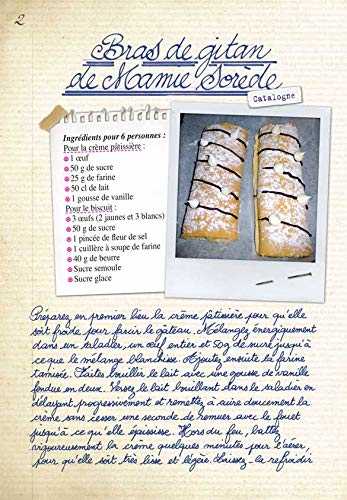 2
Bras de gitan
de Mamie Sorède
Catalogne
Ingrédients pour 6 personnes :
Pour la crème pâtissière :
1 œuf
50 g de sucre
25 g de farine
50 cl de lait
1 gousse de vanille
Pour le biscuit :
3 œufs (2 jaunes et 3 blancs)
50 g de sucre
1 pincée de fleur de sel
1 cuillère à soupe de farine
40 g de beurre
Sucre semoule
Sucre glace
Préparez en premier lieu la crème pâtissière pour qu'elle
soit froide pour farcir le gâteau. Mélangez énergiquement
dans un saladier, un œuf entier et 50g de sucre jusqu'à
ce que le mélange blanchisse. Ajoutez ensuite la farine
tamisée. Faites bouillir le lait avec une gousse de vanille
fendue en deux. Versez le lait bouillant dans le saladier en
délayant progressivement et remettez à cuire doucement la
crème sans cesser une seconde de remuer avec le fouet
jusqu'à ce qu'elle épaississe. Hors du feu, battez
vigoureusement la crème quelques minutes pour l'aérer,
pour qu'elle soit très lisse et légère. Laissez-la refroidir.